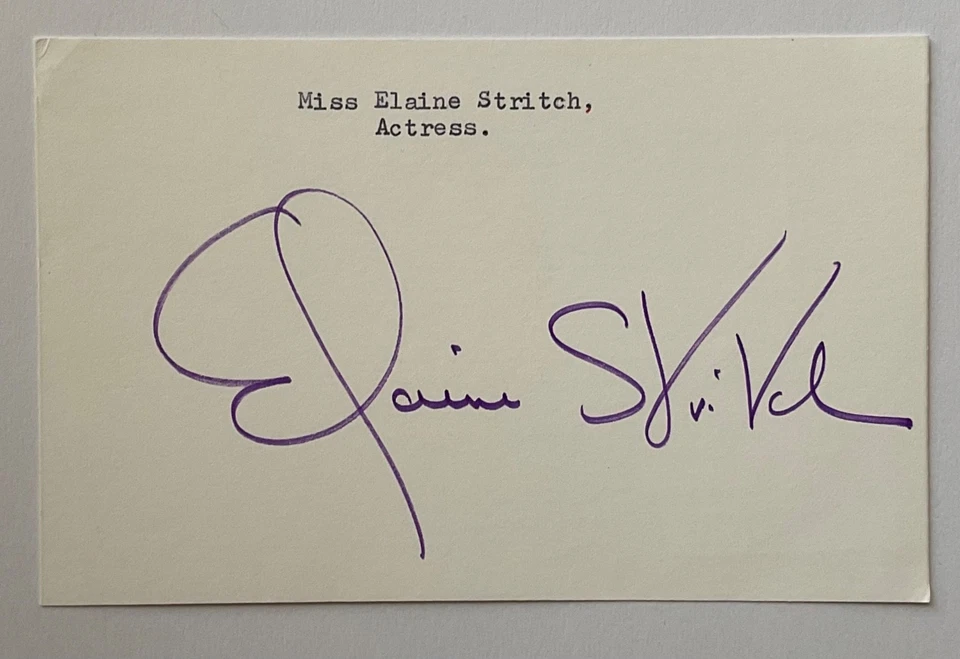 Miss Elaine Stritch,
Actress.
Elaine Stritch